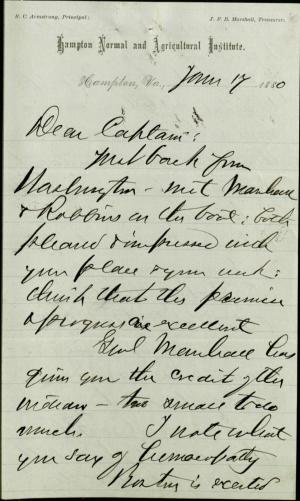 S. C. Armstrong, Principal; J. F. B. Marshall, Treasurer.
Hampton Normal and Agricultural Institute.
Hampton, Va., Jan 17 1880
Dear Captain:
back from
Washington – met Marshall
& Robbins on the boat; both
pleased & impressed with
your place & your work;
think that the promise
& progress are excellent
Genl Marshall has
given you the credit of the
Indians – too small to do
much. I note what
you say of homoeopathy
Boston is excited